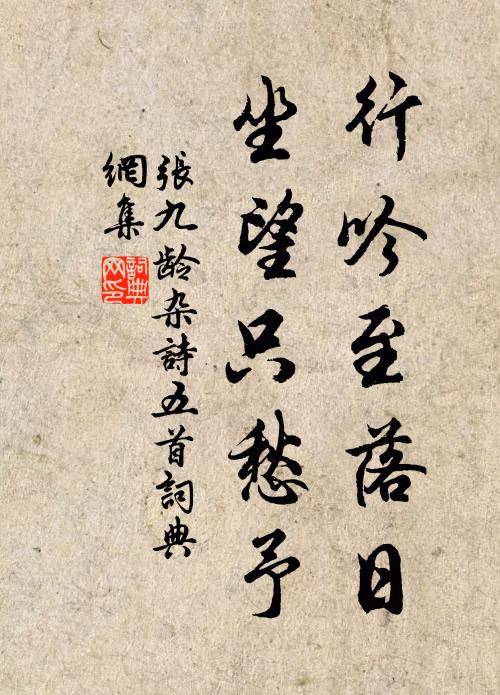 行吟至落日
坐望只愁予
張九龄杂詩五首詞典
網集
詞典
网印